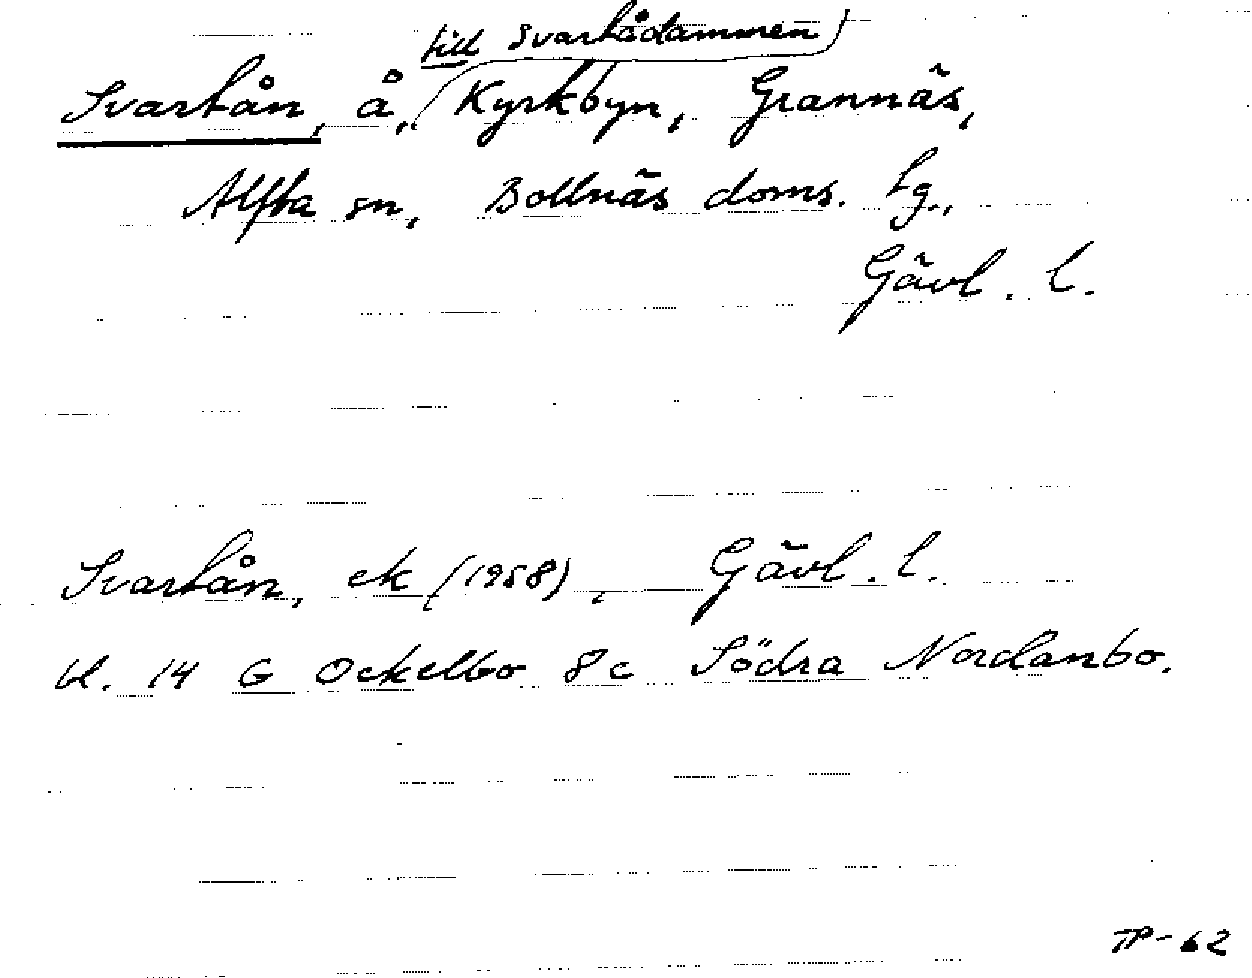 till Svartådammen
Svartån, å, Kyrkbyn, Grannäs,
Alfta sn, Bollnäs doms. tg.,
Gävl. l.
Svartån, ek (1958), Gävl. l.
bl. 14 G Ockelbo 8 c Södra Nordanbo.
TP-62